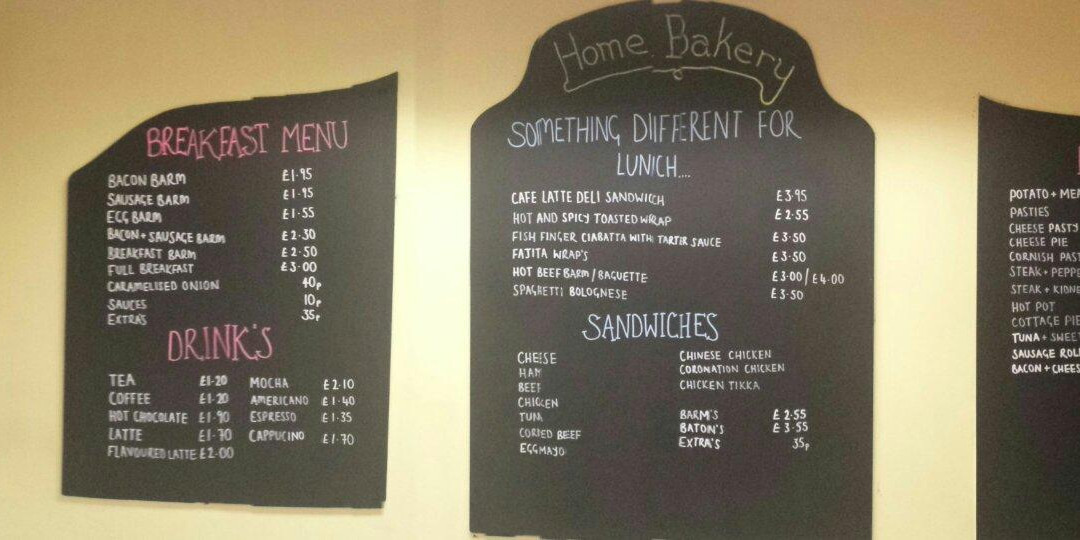 BREAKFAST MENU
BACON BARM £1.95
SAUSAGE BARM £1.95
EGG BARM £1.55
BACON + SAUSAGE BARM £2.30
BREAKFAST BARM £2.50
FULL BREAKFAST £3.00
CARAMELISED ONION 40p
SAUCES 10p
EXTRA'S 35p
DRINK'S
TEA £1.20 MOCHA £2.10
COFFEE £1.20 AMERICANO £1.40
HOT CHOCOLATE £1.90 ESPRESSO £1.35
LATTE £1.70 CAPPUCINO £1.70
FLAVOURED LATTE £2.00
Home Bakery
SOMETHING DIIFFERENT FOR
LUNICH....
CAFE LATTE DELI SANDWICH £3.95
HOT AND SPICY TOASTED WRAP £2.55
FISH FINGER CIABATTA WITH TARTIR SAUCE £3.50
FAJITA WRAP'S £3.50
HOT BEEF BARM / BAGUETTE £3.00 / £4.00
SPAGHETTI BOLOGNESE £3.50
SANDWICHES
CHEESE CHINESE CHICKEN
HAM CORONATION CHICKEN
BEEF CHICKEN TIKKA
CHICKEN
TUNA BARM'S £2.55
CORNED BEEF BATON'S £3.55
EGGMAYO EXTRA'S 35p
POTATO + MEA
PASTIES
CHEESE PASTY
CHEESE PIE
CORNISH PAST
STEAK + PEPPE
STEAK + KIDNE
HOT POT
COTTAGE PIE
TUNA + SWEET
SAUSAGE ROLL
BACON + CHEES